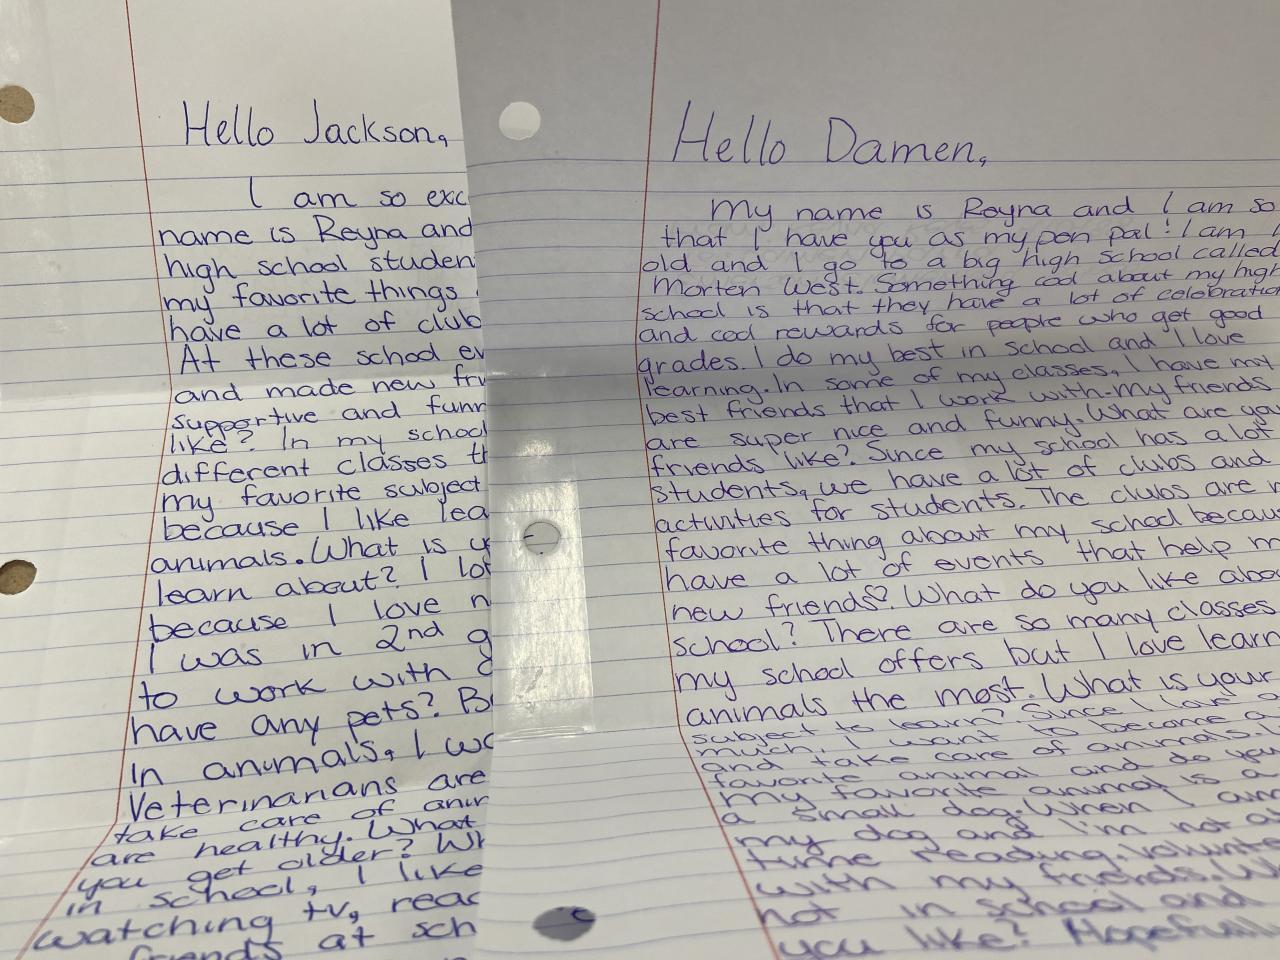 Hello Jackson,
I am so exc
name is Reyna and
high school studen
my favorite things
have a lot of club
At these school ev
and made new fri
supportive and funn
like? In my school
different classes th
my favorite subject
because I like lea
animals. What is y
learn about? I lo
because I love n
I was in 2nd g
to work with
have any pets? Be
in animals, I wo
Veterinarians are
take care of anim
are healthy. What
you get older? Wh
in school, I like
watching tv, read
friends at sch
Hello Damen,
My name is Reyna and I am so
that I have you as my pen pal! I am 1
old and I go to a big high school called
Morten West. Something cool about my high
school is that they have a lot of celebration
and cool rewards for people who get good
grades. I do my best in school and I love
learning. In some of my classes, I have my
best friends that I work with. My friends
are super nice and funny. What are you
friends like? Since my school has a lot
students, we have a lot of clubs and
activities for students. The clubs are m
favorite thing about my school becau
have a lot of events that help m
new friends? What do you like abou
school? There are so many classes
my school offers but I love learn
animals the most. What is your
subject to learn? Since I love a
much, I want to become a
and take care of animals.
favorite animal and do you
My favorite animal is a
a small dog. When I am
my dog and I'm not a
time reading, volunte
with my friends. W
not in school and
you like? Hopefull